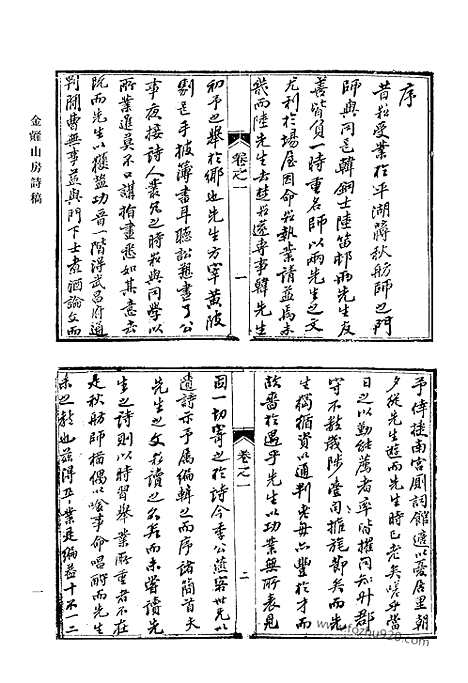 金粟山房詩稿
序
昔於受業於平湖蔣秋舫師之門
師與同邑韓銅士陸笛邨兩先生友
善皆負一時重名師以兩先生之文
尤利於場屋因命於執業請益焉未
幾而陸先生去楚於遂專事韓先生
卷之一
一
初予之舉於鄉也先生方宰黃陂
劇邑手披簿書耳聽訟愬畫了公
事夜接詩人叢尾之時於與同學以
所業進莫不口講指畫悉如其意去
既而先生以獲盜功晉一階得武昌府通
判閒曹無事益與門下士煮酒論文而
予倖捷南宮廁詞館適以憂居里朝
夕從先生遊而先生時已老矣嗟乎當
日之以勤能薦者率皆擢同知升郡
守不數歲陟臺司推旄節矣而先
生獨循資以通判老毋亦豐於才而
故嗇於遇乎先生以功業無所表見
卷之一
二
因一切寄之於詩今季公蓮案世兄以
遺詩示予属編輯之而序諸簡首夫
先生之文於讀之久矣而未嘗讀先
生之詩則以時習舉業所重者不在
是秋舫師楷偶以唫事命唱酬而先生
未之教也茲得卒業是編蓋十不一二
一